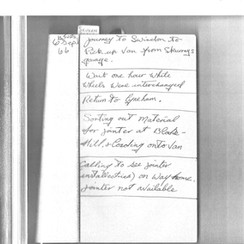 6 Sep
66
journey to Swindon to
Pick up Van from Skurrys
garage.
Wait one hour while
wheels were interchanged
Return to Gresham.
Sorting out Material
for jointer at Blake-
Hill & Loading onto Van
Calling to see jointer
on way home.
jointer not available